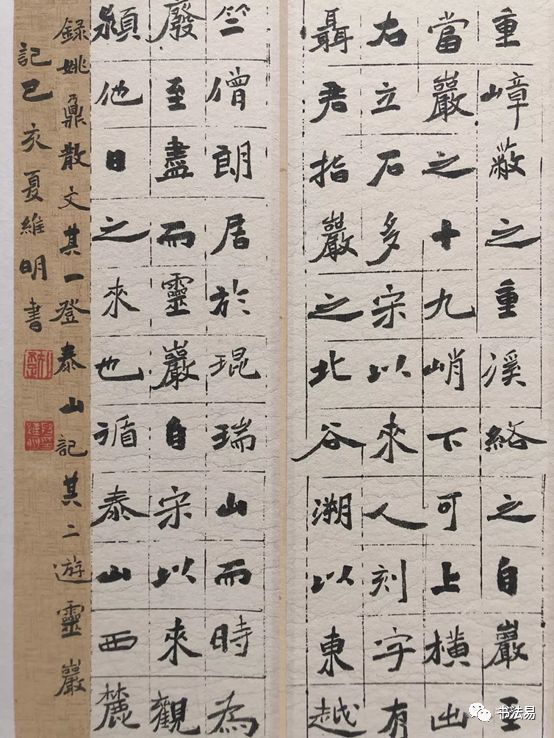 重嶂蔽之重溪絡之自巖至
當巖之十九峭下可上橫出
右立石多宋以來人刻字有
聶君指巖之北谷溯以東越
竺僧朗居於琨瑞山而時為
廢至盡而靈巖自宋以來觀
潁他日之來也循泰山西麓
錄姚鼐散文其一登泰山記其二遊靈巖
記己亥夏維明書
书法易